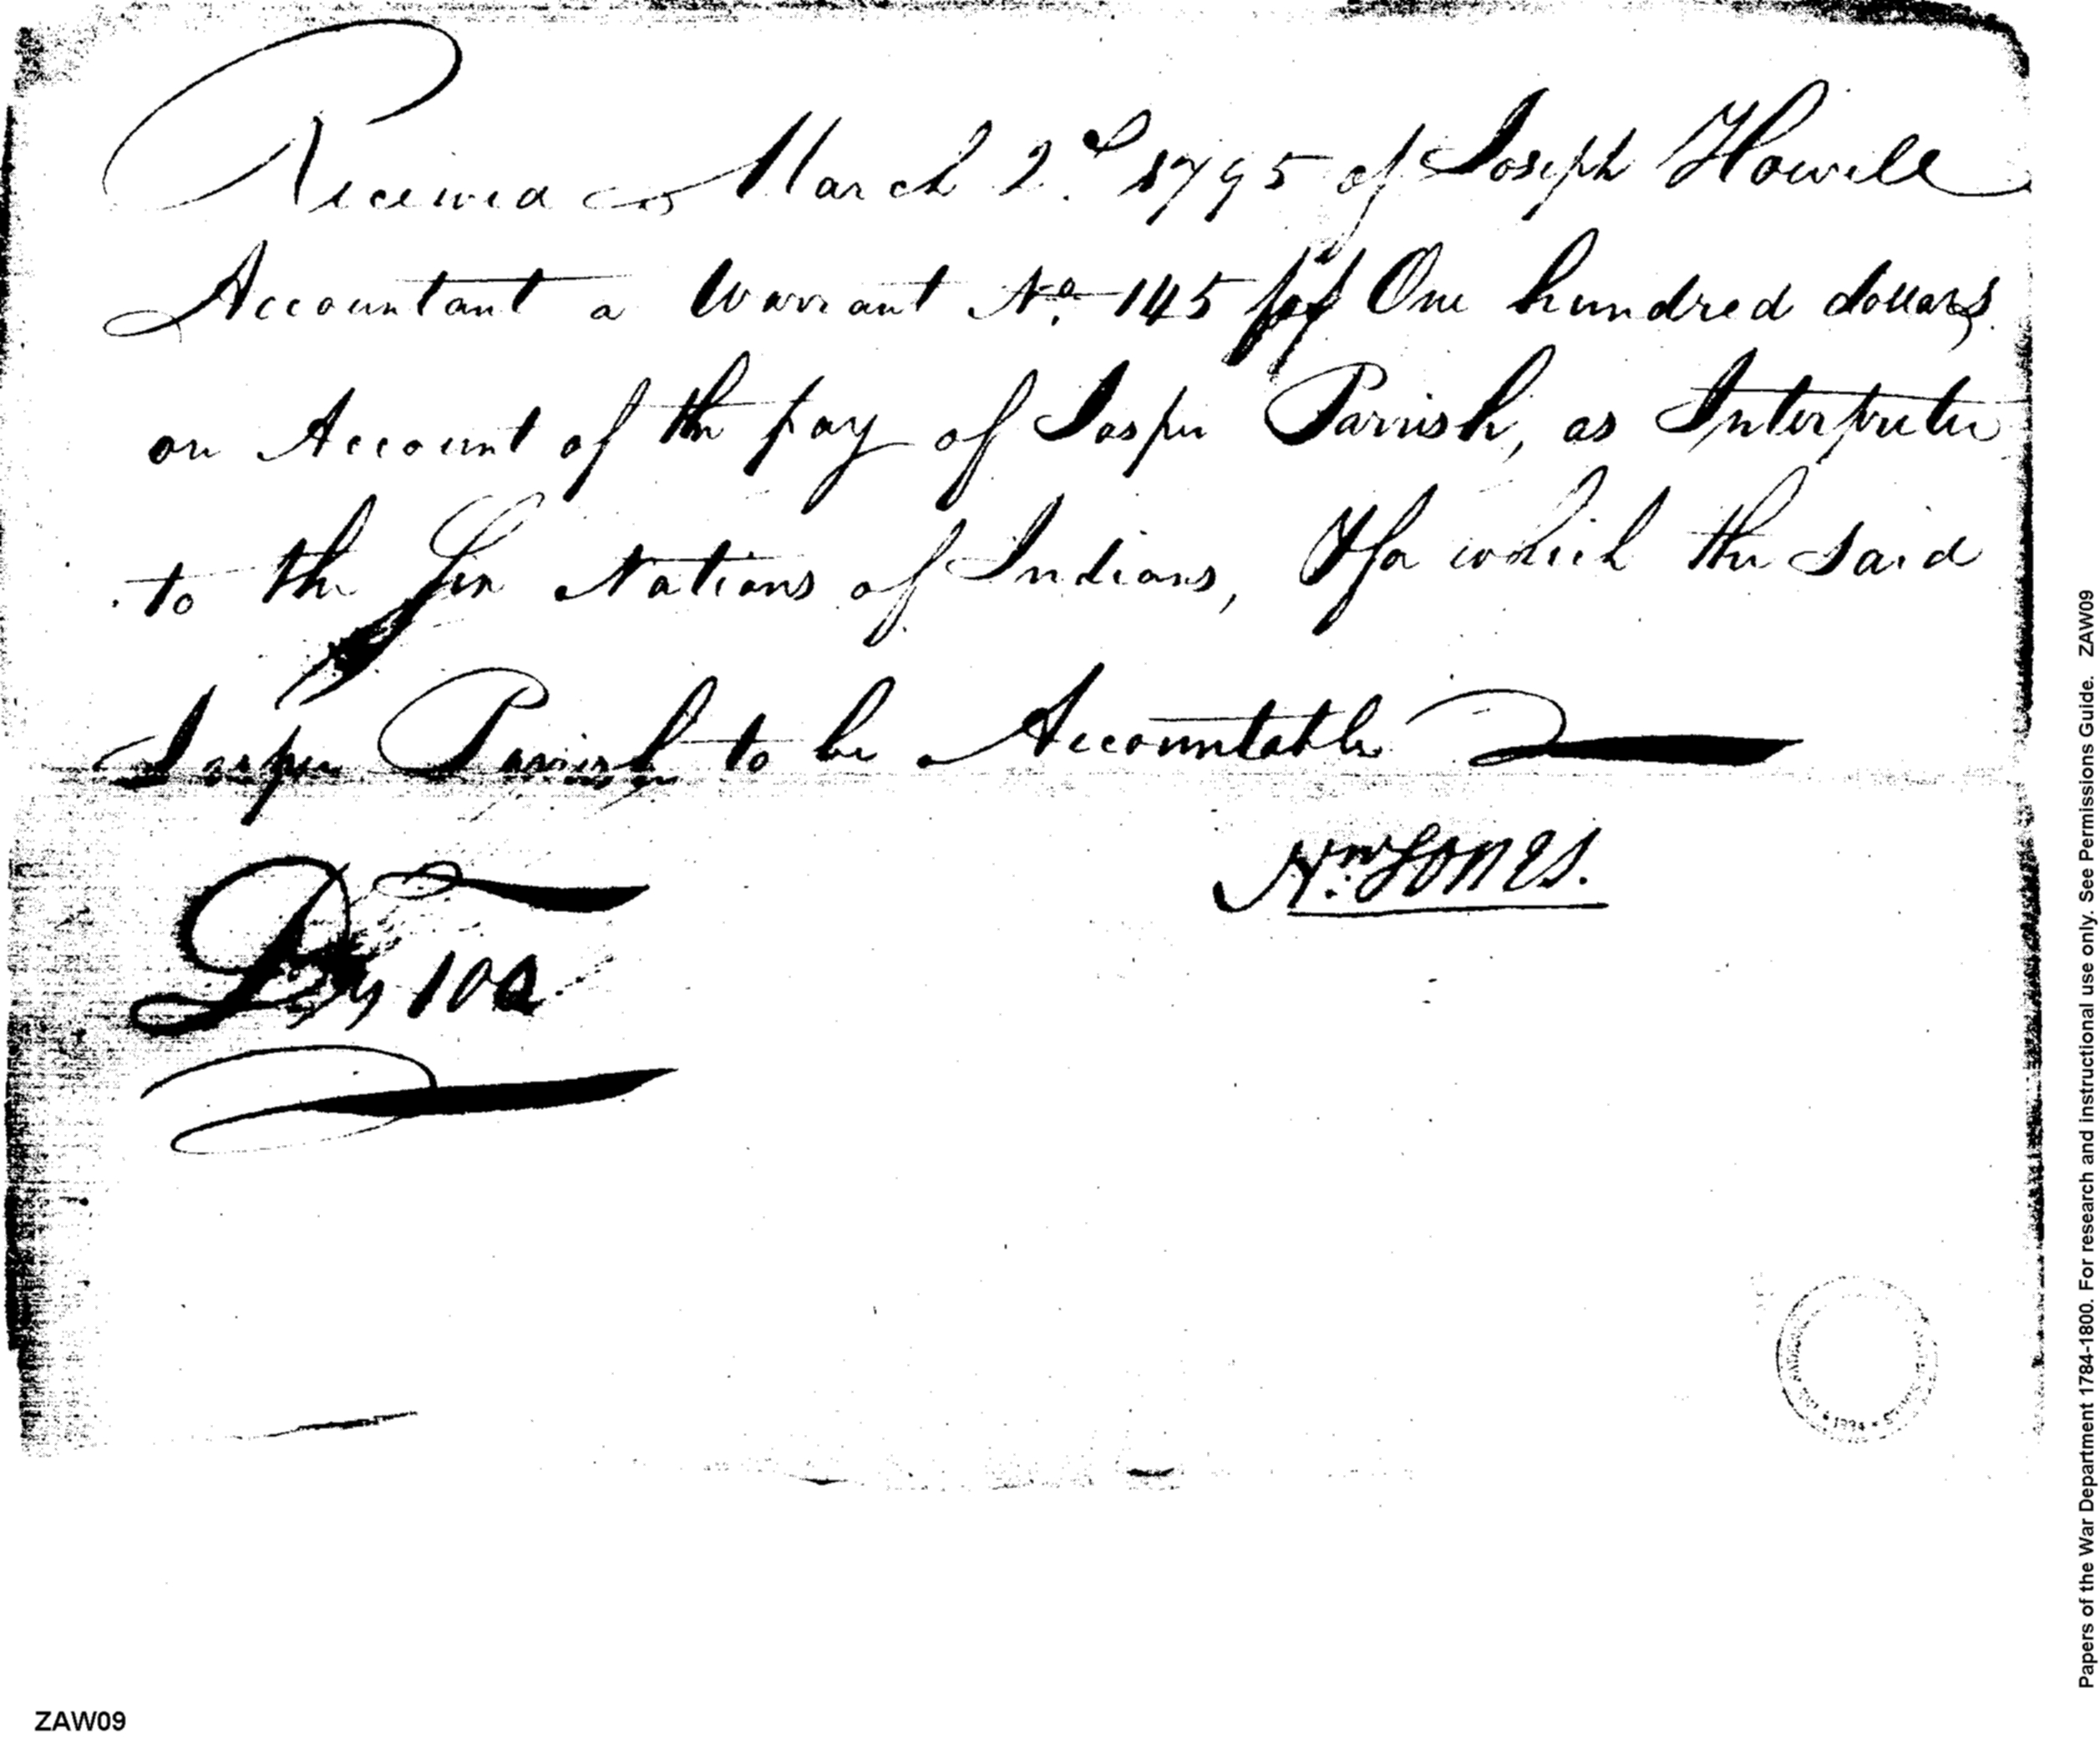 Received March 2.d 1795 of Joseph Howell
Accountant a Warrant No. 145 for One hundred dollars
on Account of the pay of Jasper Parrish, as Interpreter
to the Six Nations of Indians, for which the said
Jasper Parrish to be Accountable
Wm. Jones.
100
1934
Papers of the War Department 1784-1800. For research and instructional use only. See Permissions Guide. ZAW09
ZAW09